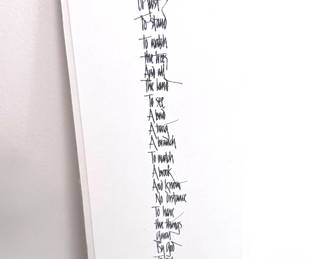 Or just
To stand
To watch
the trees
And all
The land
To see
A bird
A
A branch
To watch
A brook
And know
No distance
To have
the things
Given
By God